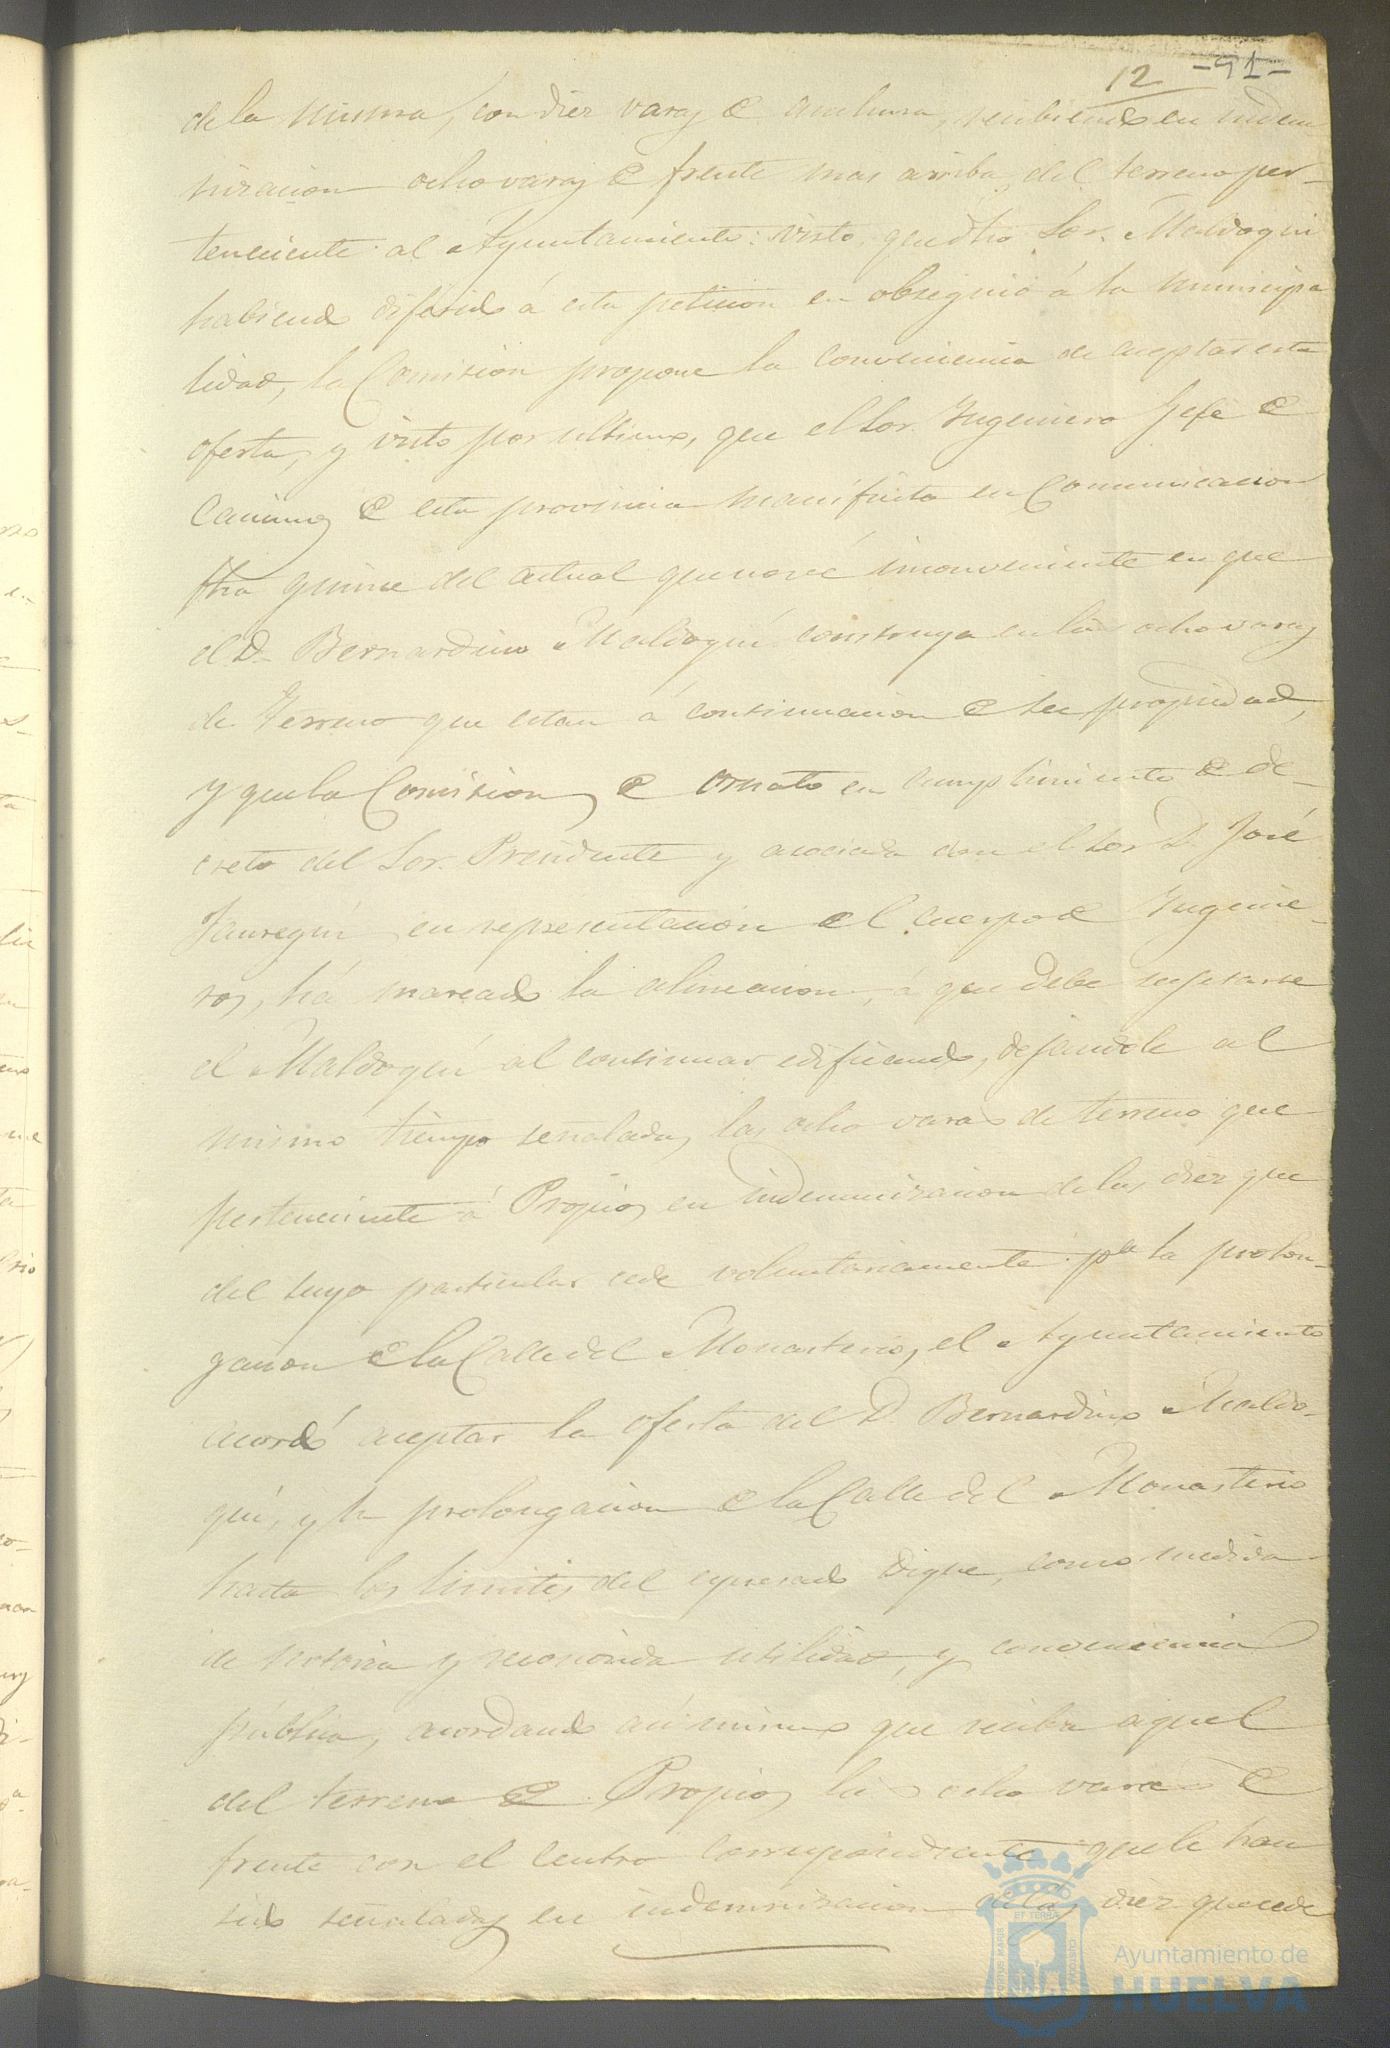 12 -91-
de la misma, con diez varas de anchura, recibiendo en indem
nizacion ocho varas de frente mas arriba, del terreno per-
teneciente al Ayuntamiento: visto, que dho Sor. Maldoqui
habiendo diferido á esta peticion en obsequio á la municipa
lidad, la Comision propone la conveniencia de aceptar esta
oferta, y visto por ultimo, que el Sor. Ingeniero Jefe de
Caminos de esta provincia manifiesta en Comunicacion
fha quince del actual que no vé inconveniente en que
el D. Bernardino Maldoqui construya en las ocho varas
de Terreno que estan á continuacion de su propiedad,
y que la Comision de ornato en cumplimiento de de-
creto del Sor. Presidente y asociada con el Sor D. José
Jauregui en representacion del cuerpo de Ingenie-
ros, há marcado la alineacion, á que debe sujetarse
el Maldoqui al continuar edificando, dejandole al
mismo tiempo senaladas las ocho varas de terreno que
pertenecinte á Propios en indemnizacion de las diez que
del suyo particular cede voluntariamente pa la prolon-
gacion de la Calle del Monasterio, el Ayuntamiento
acordó aceptar la oferta del D. Bernardino Maldo-
qui, y la prolongacion de la Calle del Monasterio
hasta los limites del expresado Dique, como medida
de notoria y reconocida utilidad, y conveniencia
pública, acordando asi mismo que reciba aquel
del terreno de Propios las ocho varas de
frente con el centro correspondiente que le han
sido señaladas en indemnizacion de las diez que cede
PORTUS MARIS ET TERRAE CUSTODIA
Ayuntamiento de
HUELVA